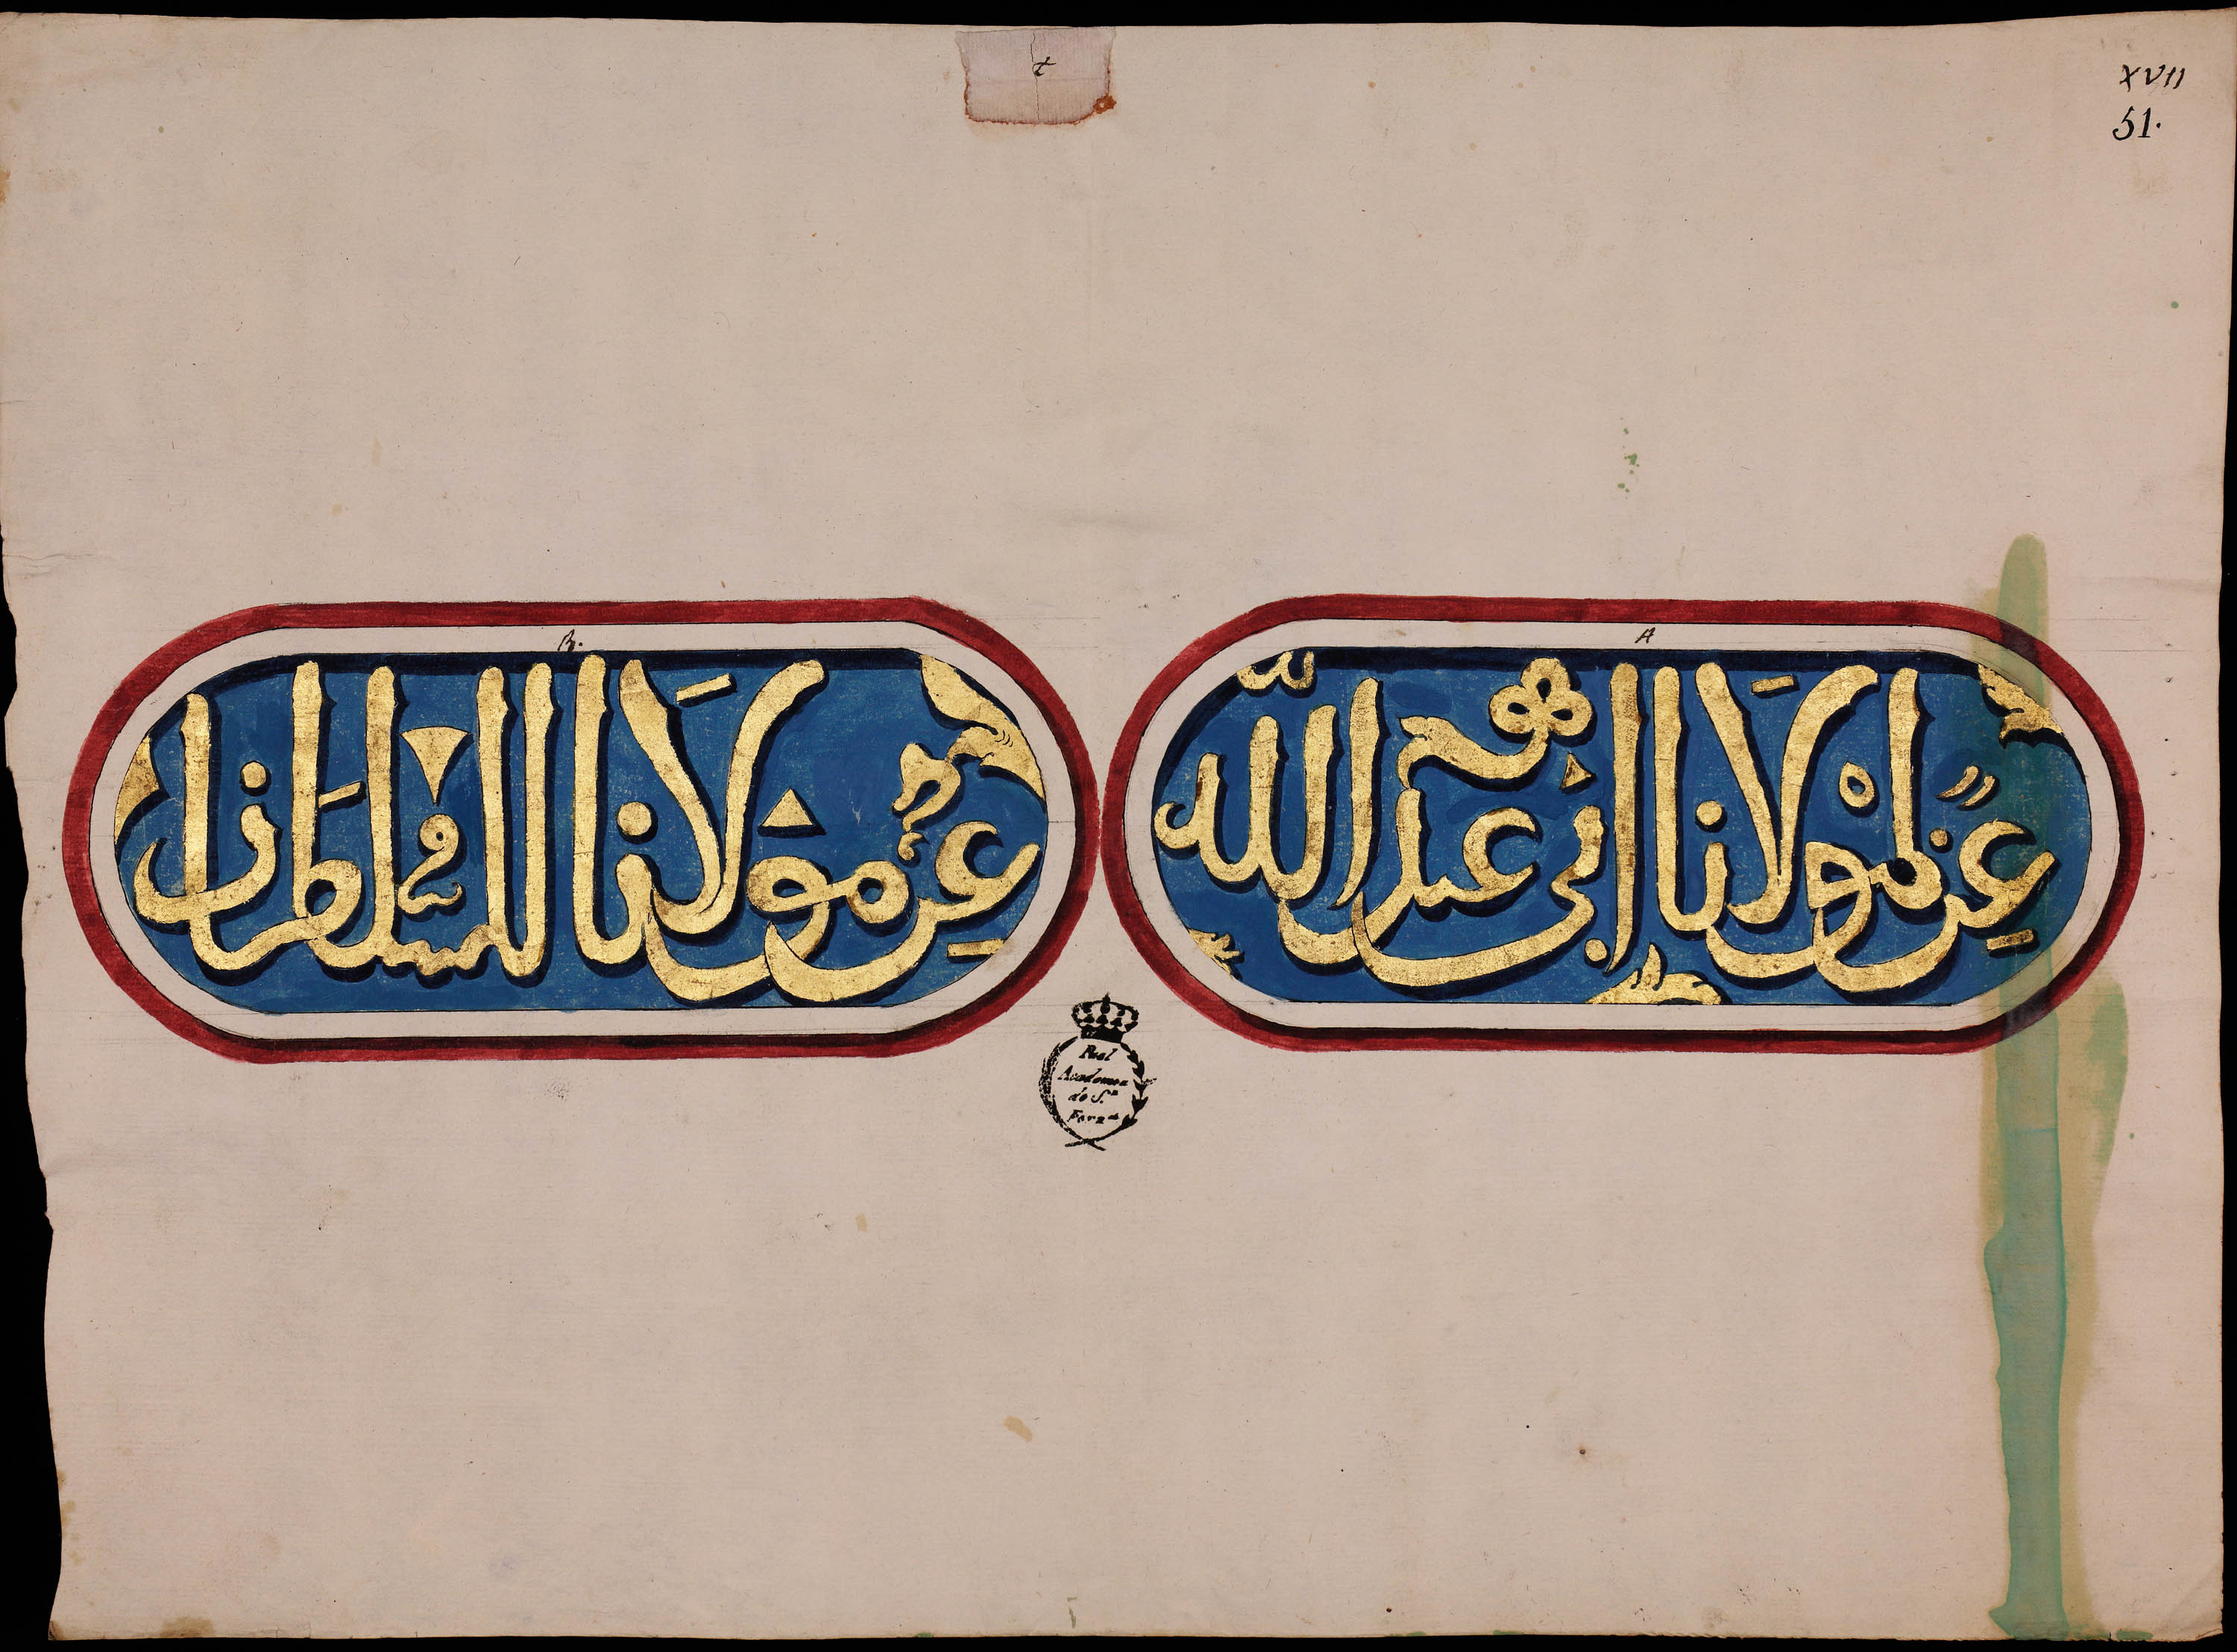 XVII
51.
A
عِزٌ لمْولَانا ابي عبد الله
B.
عِز مولَانا السلطان
Real
Academia
de S.n
Fern.do